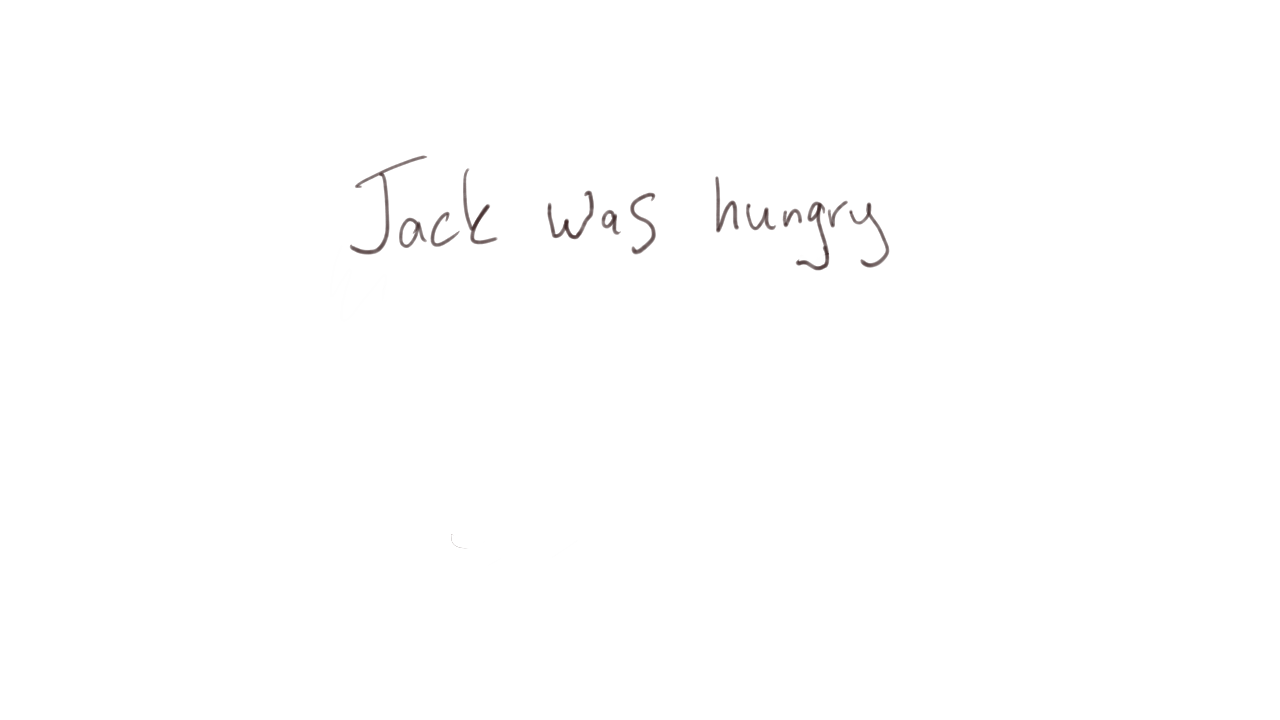 Jack was hungry